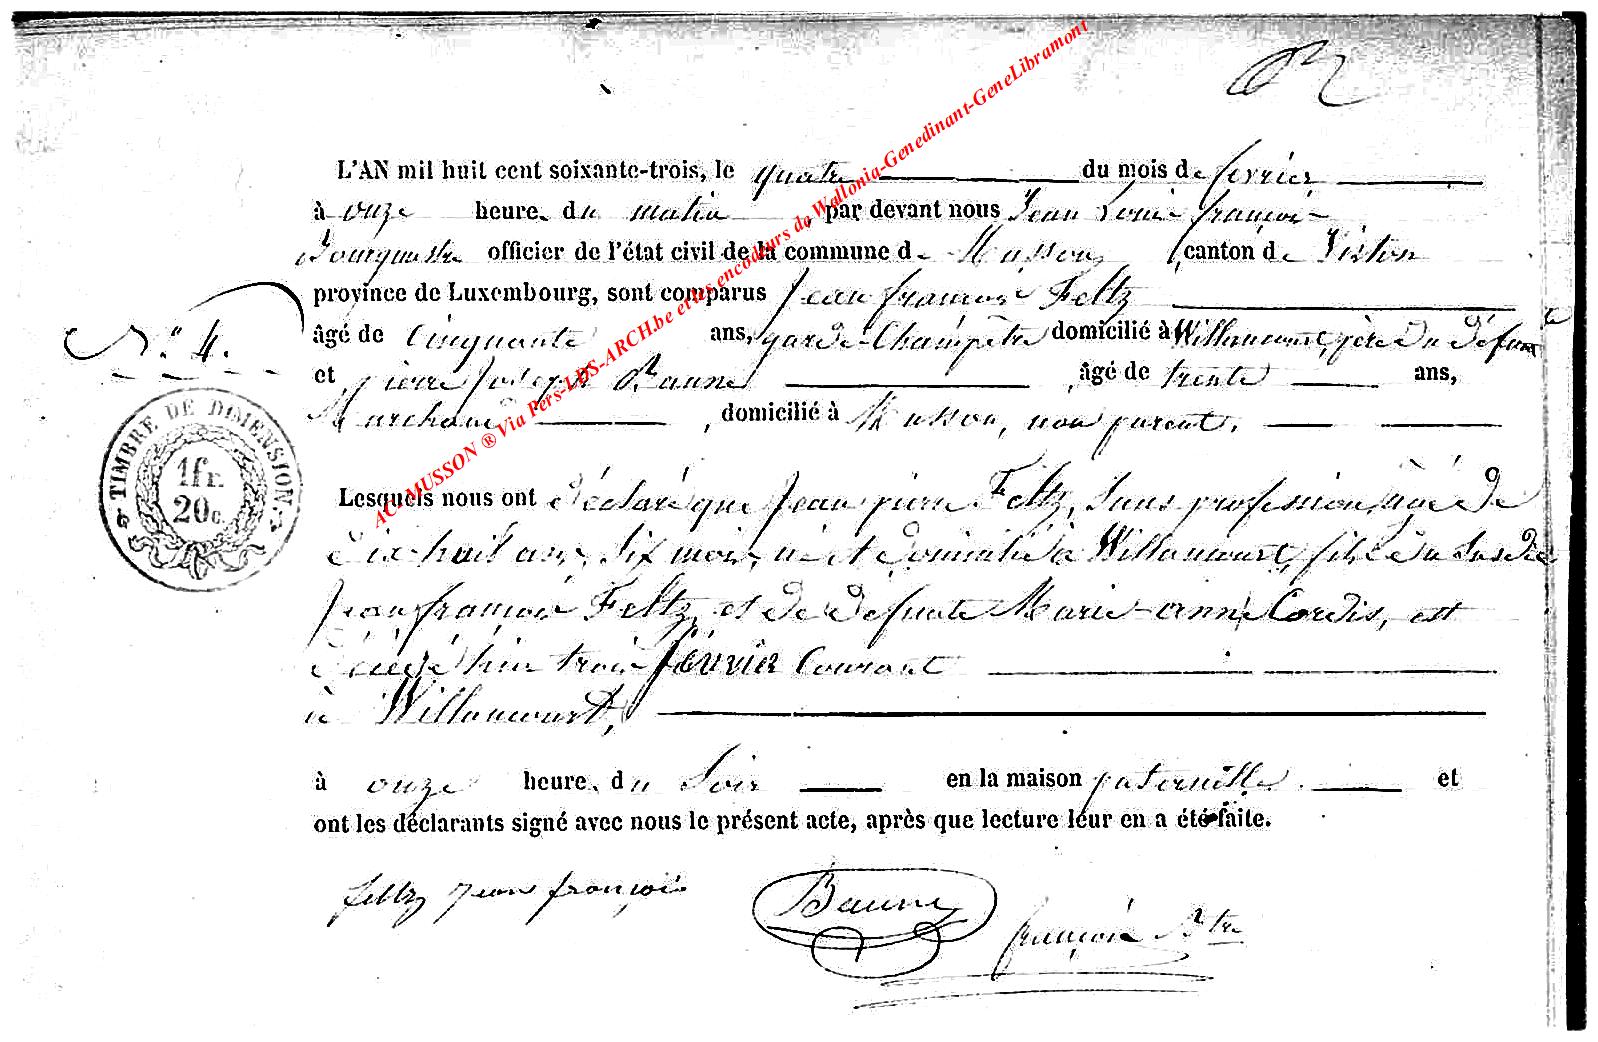 L'AN mil huit cent soixante-trois, le quatre du mois de fevrier
à onze heure du matin, par devant nous Jean Louis françois
Bourgmestre officier de l'état civil de la commune de Musson, canton de Virton
province de Luxembourg, sont comparus Jean françois Feltz
N° 4.
âgé de Cinquante ans, garde-Champêtre domicilié à Willancourt, père du défunt
et pierre Joseph Baune, âgé de trente ans,
Marchand, domicilié à Musson, non parent.
TIMBRE DE DIMENSION.
1fr.
20c.
Lesquels nous ont déclaré que Jean pierre Feltz, sans profession, âgé de
dix-huit ans, six mois, né et domicilié à Willancourt, fils du susdit
Jean françois Feltz, et de defunte Marie-anne Cordis, est
décédé hier trois février Courant
à Willancourt,
à onze heure du Soir en la maison paternelle. et
ont les déclarants signé avec nous le présent acte, après que lecture leur en a été faite.
feltz jean françois
Baune
françois Btre
AC-MUSSON ® Via Pers-LDS-ARCH.be et les encodeurs de Wallonia-Genedinant-GeneLibramont